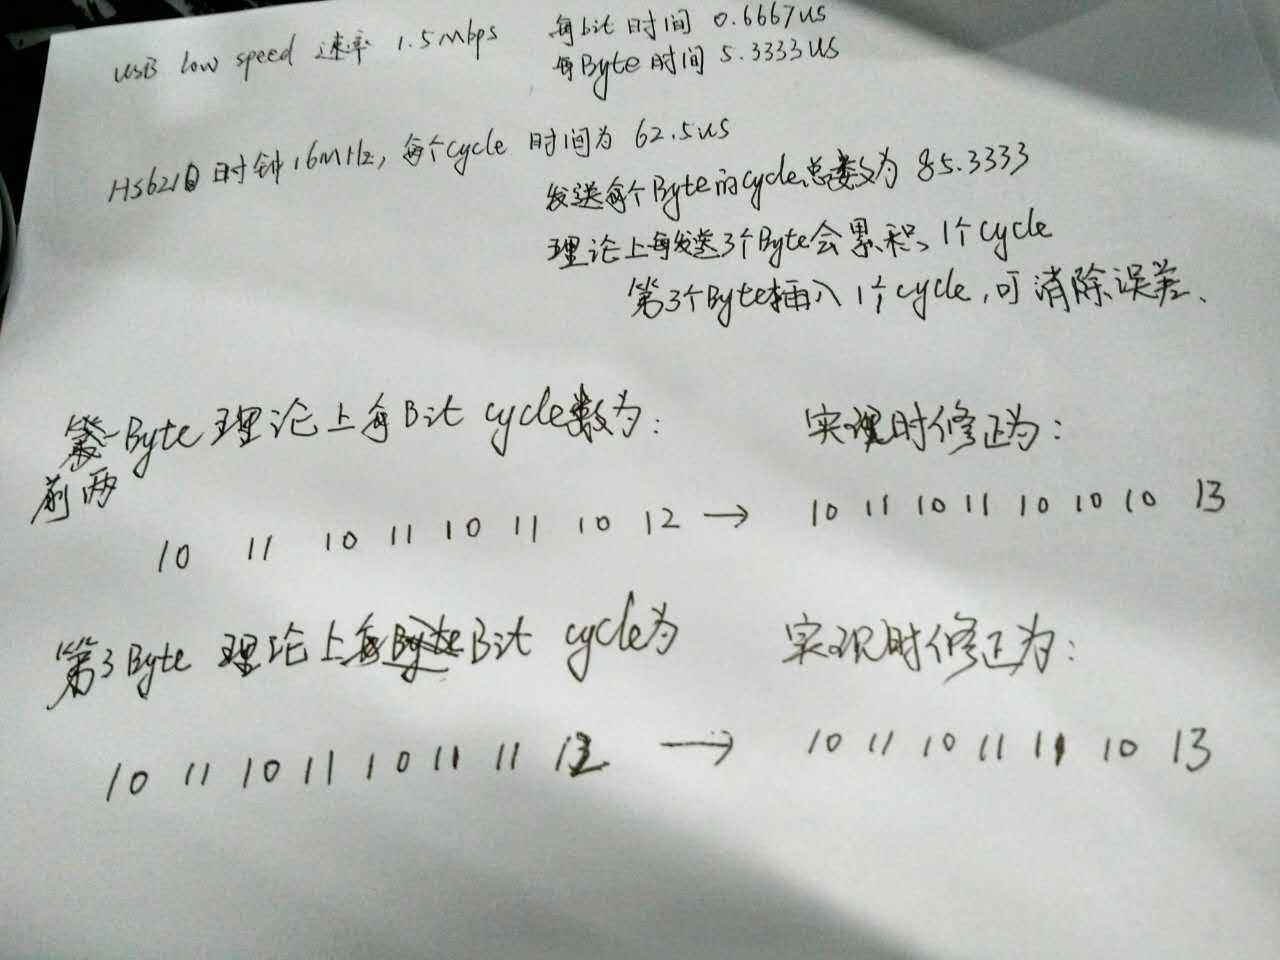 USB low speed 速率 1.5Mbps 每bit时间 0.6667us
每Byte时间 5.3333us
HS6210 时钟16MHz, 每个cycle 时间为 62.5us
发送每个Byte的cycle总数为 85.3333
理论上每发送3个Byte会累积1个cycle
第3个Byte插入1个cycle,可消除误差、
Byte理论上每Bit cycle数为:
前两
实现时修正为:
10 11 10 11 10 11 10 12 → 10 11 10 11 10 10 10 13
第3Byte 理论上每Bit cycle为
实现时修正为:
10 11 10 11 10 11 11 12 → 10 11 10 11 11 10 13